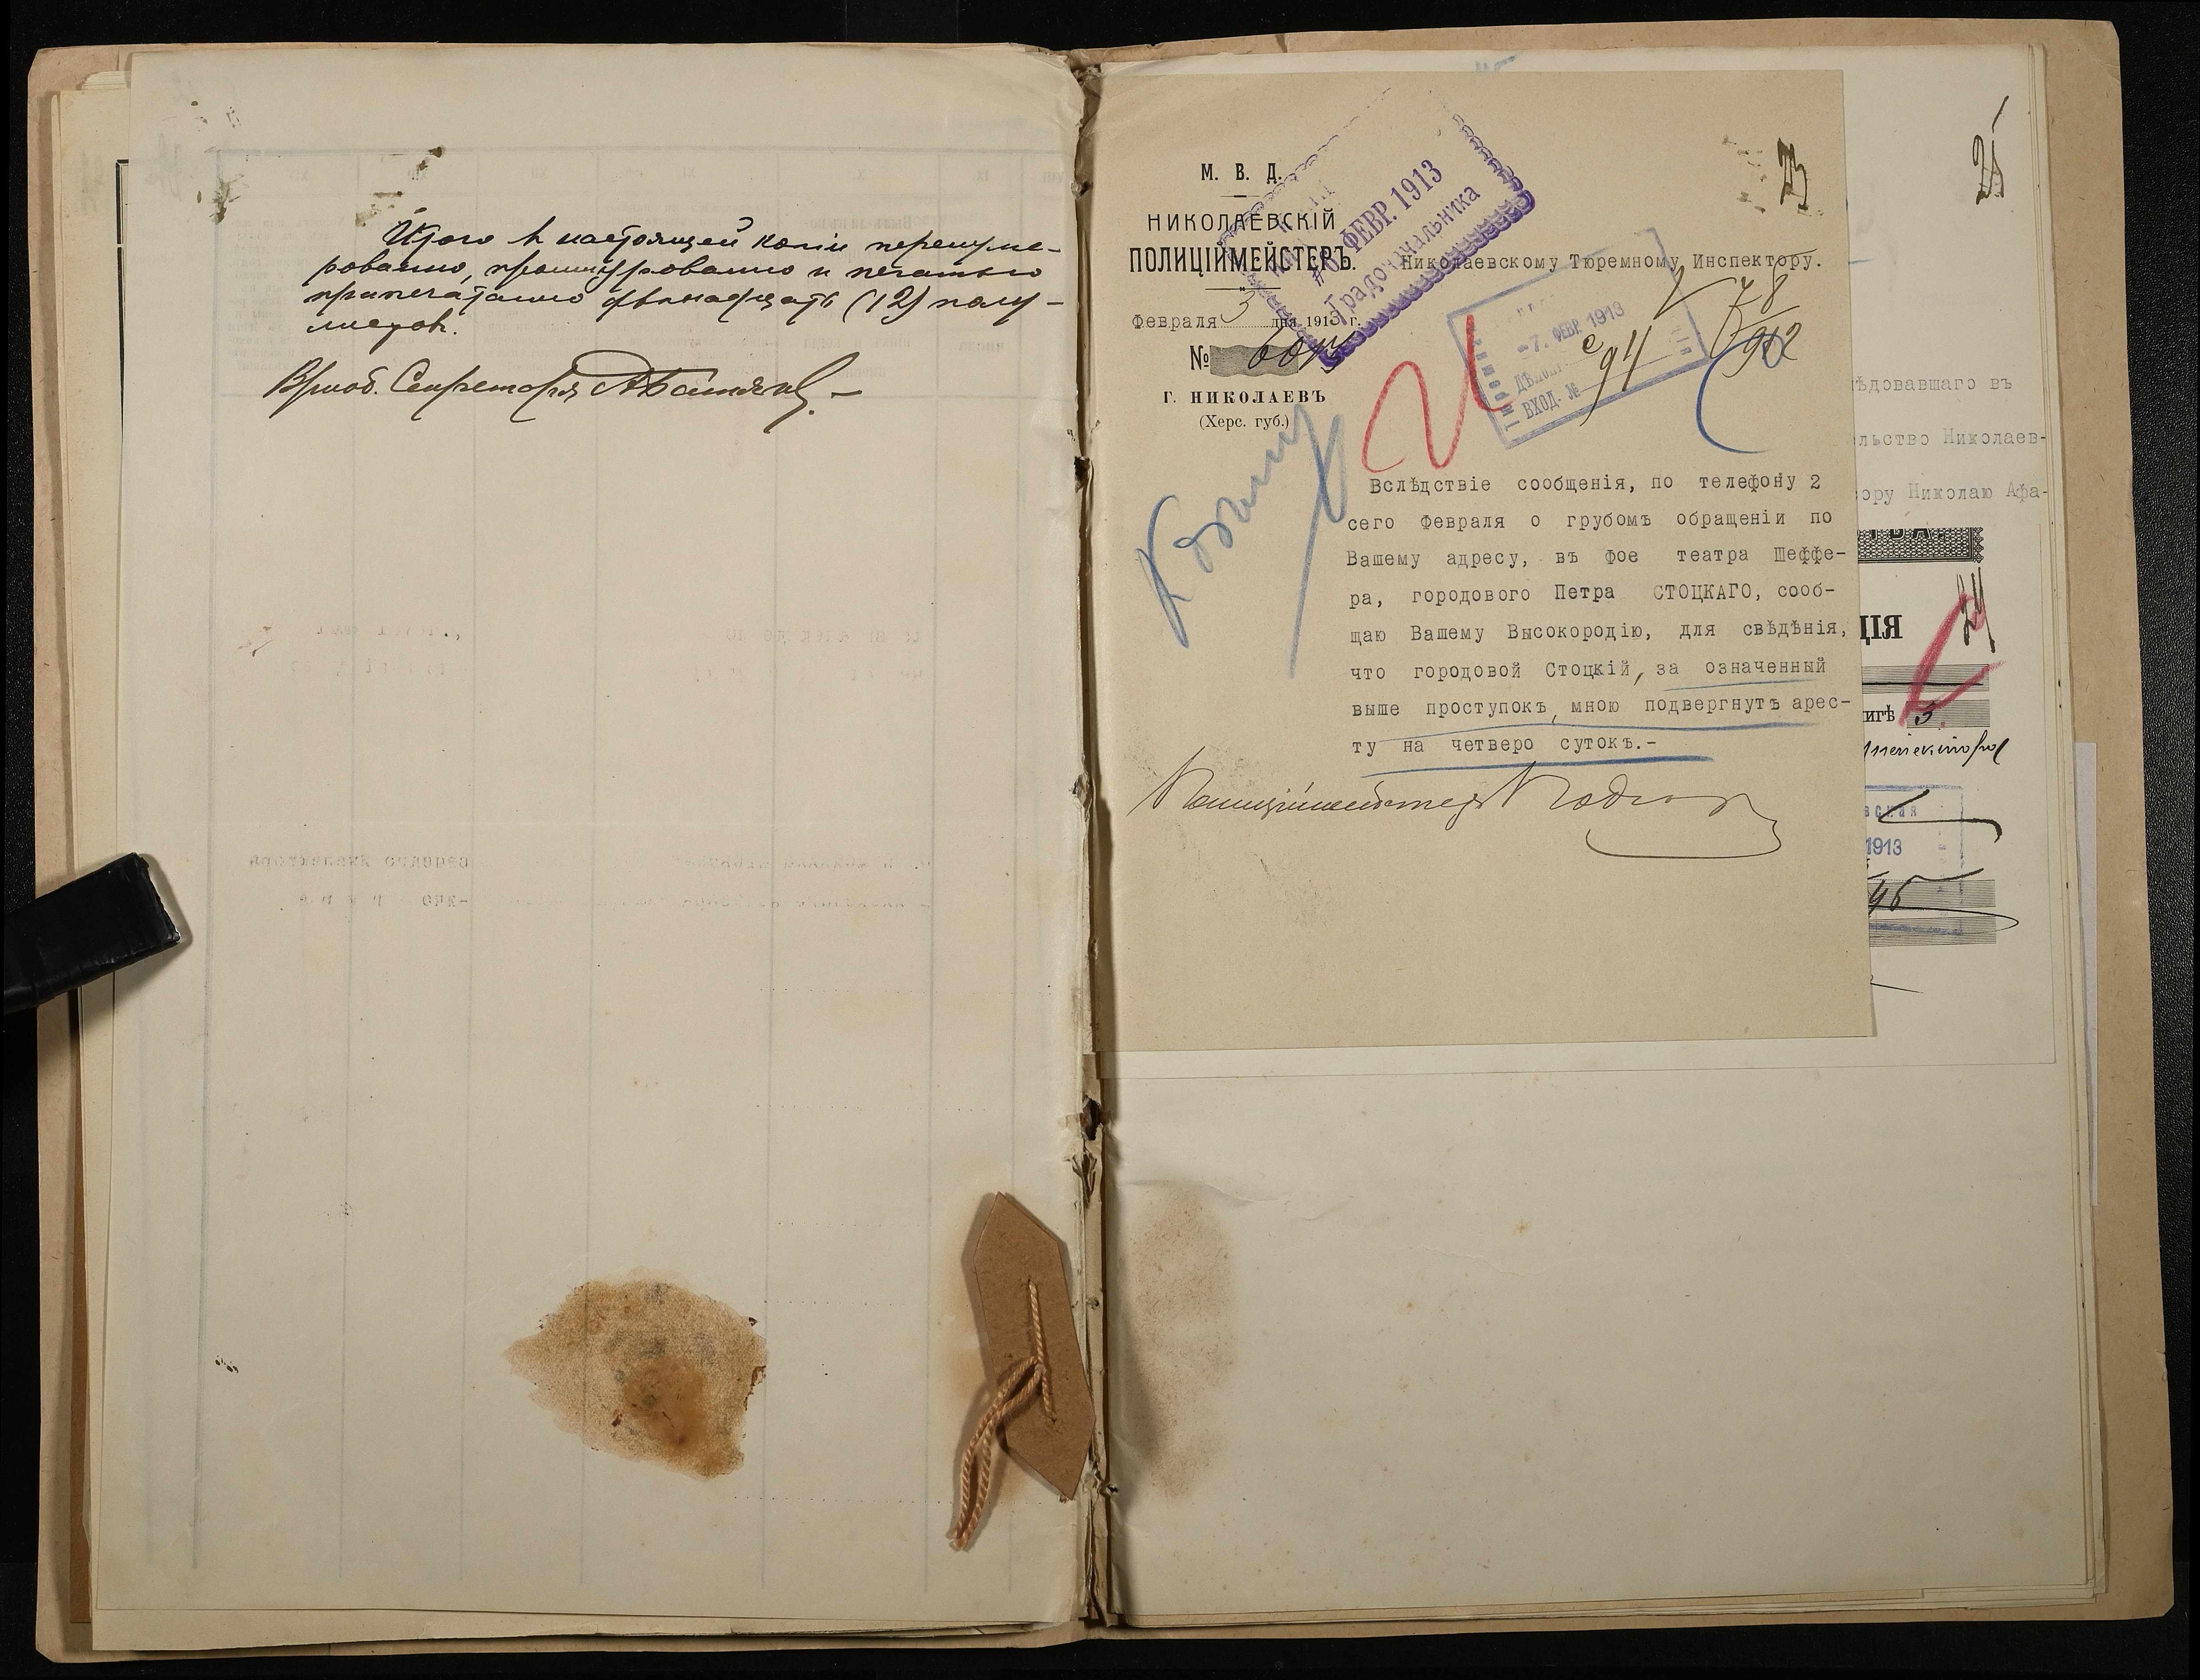 Итого в настоящей копiи перенуме-
рованно, прошнурованно и печатью
припечатанно двенадцать (12) полу-
листов.
Вриоб. Секретаря
М. В. Д.
НИКОЛАЕВСКIЙ
ПОЛИЦIЙМЕЙСТЕРЪ.
Февраля 3 дня 1913 г.
№
Г. НИКОЛАЕВЪ
(Херс. губ.)
ФЕВР. 1913
Градоначальника
23
Николаевскому Тюремному Инспектору.
-7. ФЕВР. 1913
ВХОД. № 94
Вслѣдствiе сообщенiя, по телефону 2
сего Февраля о грубомъ обращенiи по
Вашему адресу, въ фое театра Шеффе-
ра, городового Петра СТОЦКАГО, сооб-
щаю Вашему Высокородiю, для свѣдѣнiя,
что городовой Стоцкiй, за означенный
выше проступокъ, мною подвергнутъ арес-
ту на четверо сутокъ.-
Полицiймейстеръ
25
ѣдовавшаго въ
льство Николаев-
ору Николаю Афа-
ЦIЯ
24
игѣ 3
1913